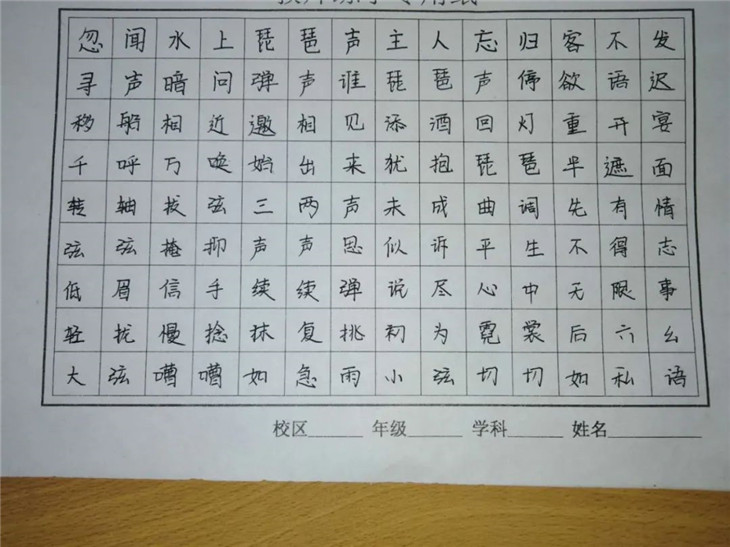 忽闻水上琵琶声主人忘归客不发
寻声暗问弹声谁琵琶声停欲语迟
移船相近邀相见添酒回灯重开宴
千呼万唤始出来犹抱琵琶半遮面
转轴拔弦三两声未成曲词先有情
弦弦掩抑声声思似诉平生不得志
低眉信手续续弹说尽心中无限事
轻拢慢捻抹复挑初为霓裳后六幺
大弦嘈嘈如急雨小弦切切如私语
校区______ 年级______ 学科______ 姓名__________